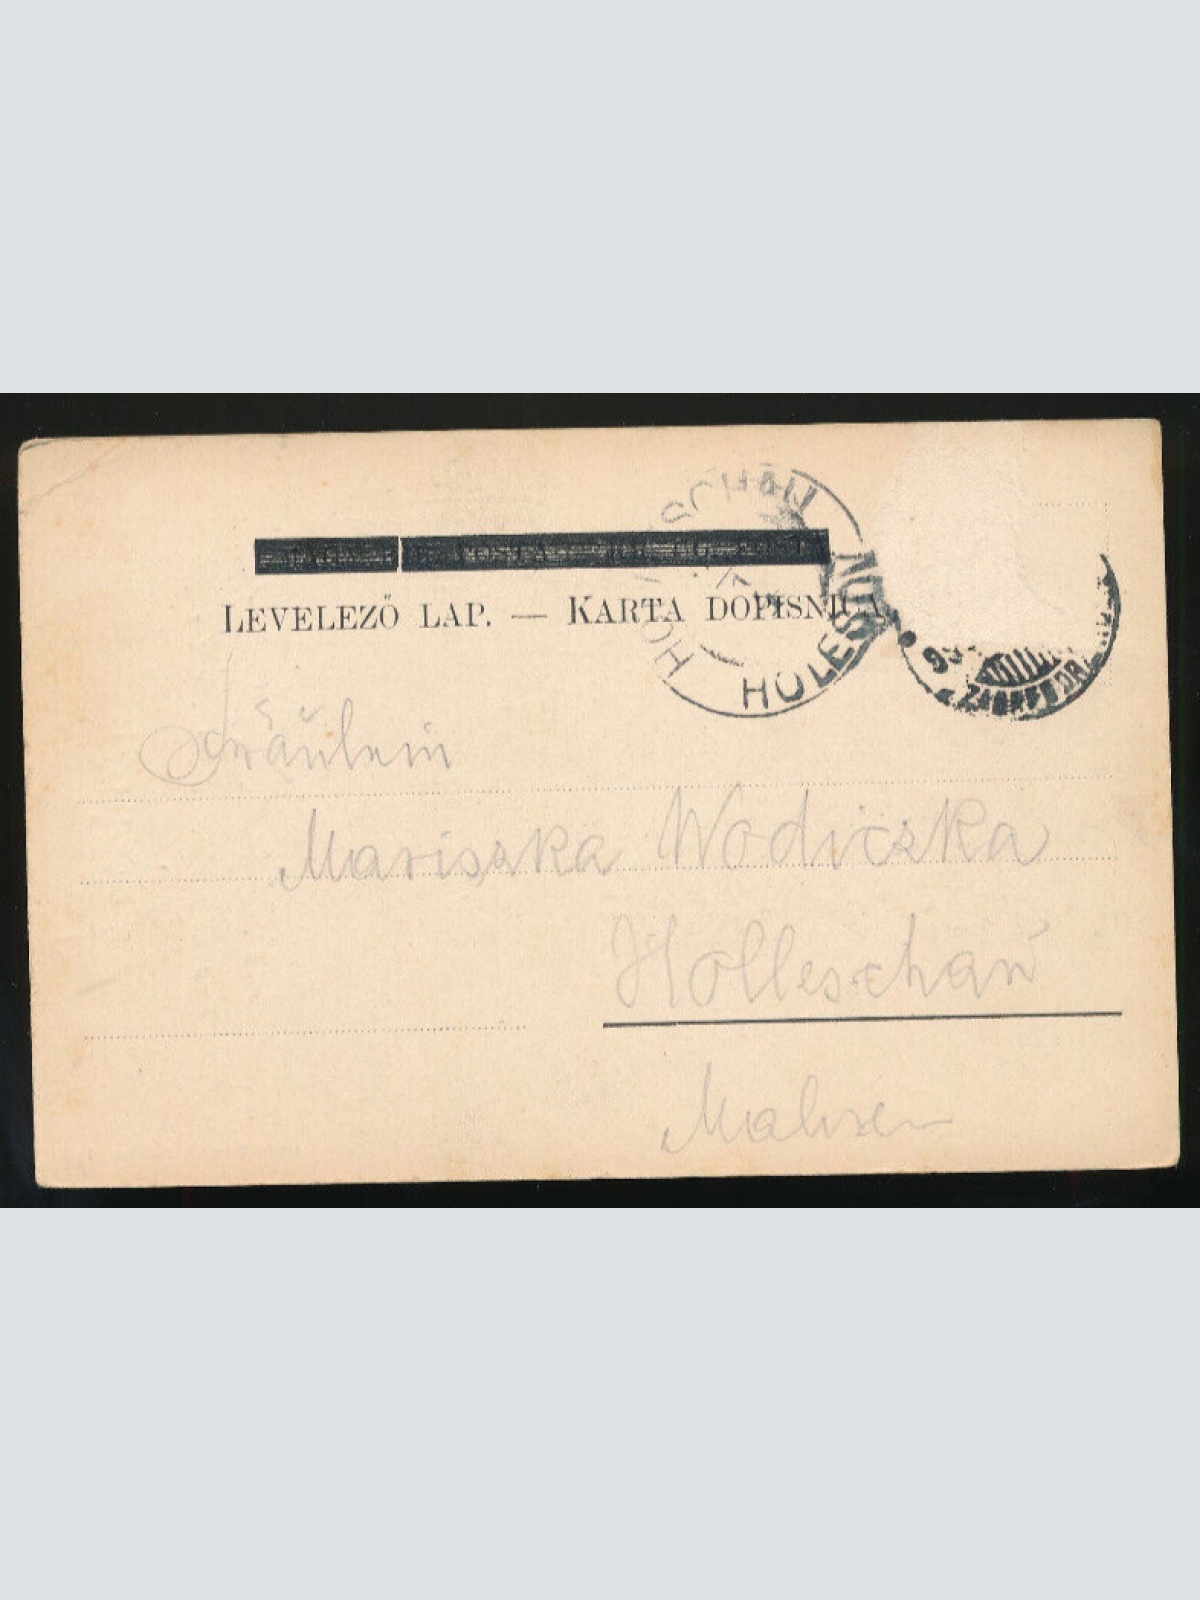 LEVELEZŐ LAP. — KARTA DOPISNICA
HOLLESCHAU
HOLEŠOV
99
ZAGREB
Fräulein
Mariszka Wodiczka
Holleschau
Mähren